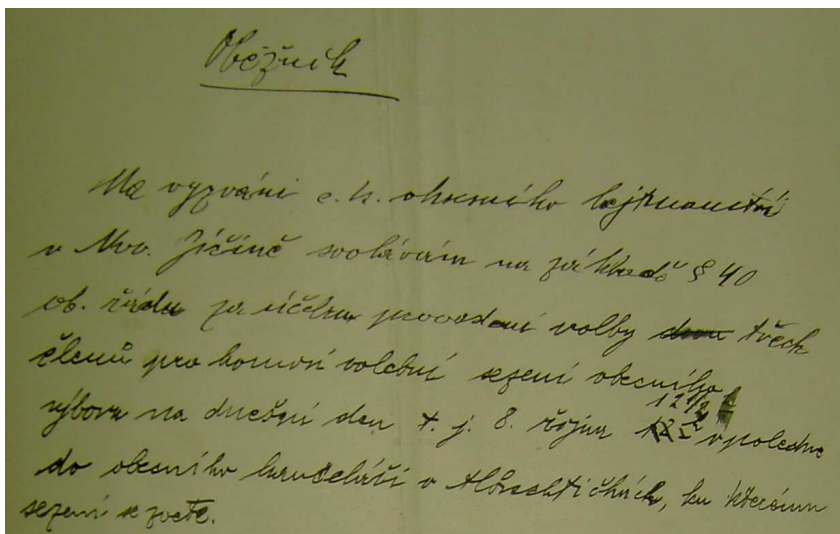 Oběžník
Na vyzvání c. k. okresního hejtmanství
v Nov. Jičíně svolávám na základě § 40
ob. řádu za účelem provedení volby dvou třech
členů pro komisi volební sezení obecního
výboru na dnešní den t. j. 8. října 12 1/2 v poledne
do obecního kanceláři v Albrechtičkách, ku kterému
sezení se zvete.